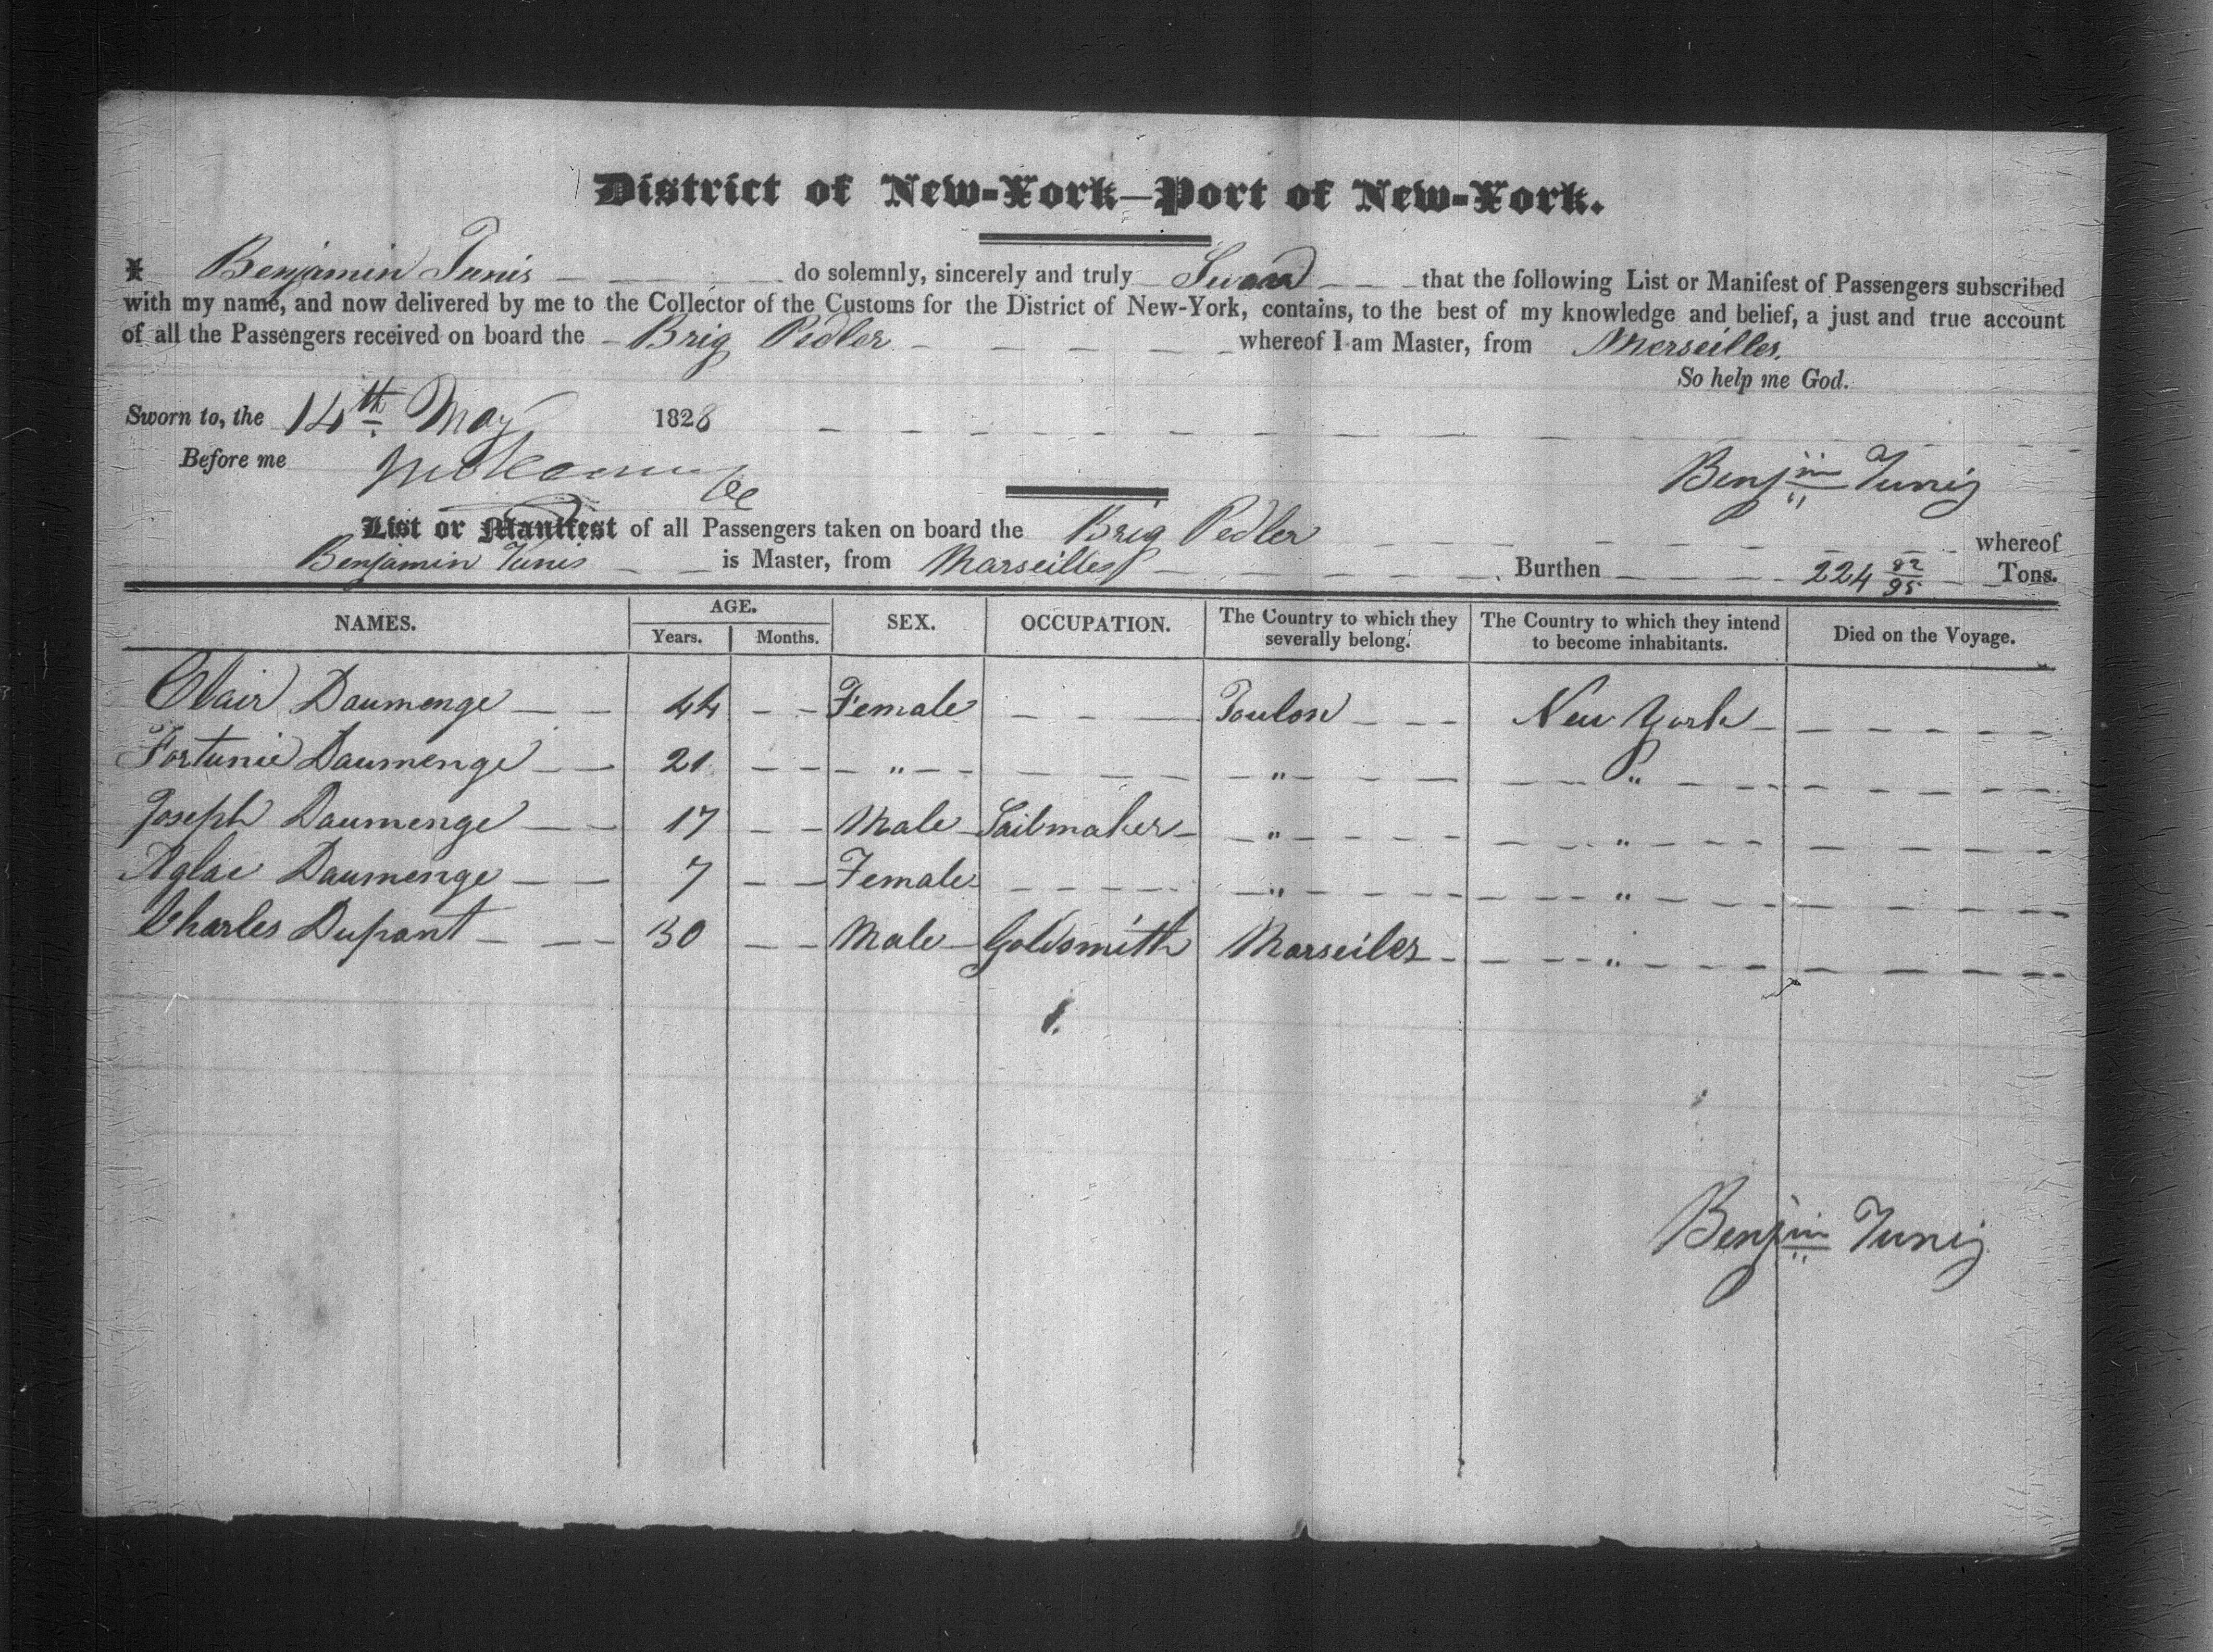 District of New-York—Port of New-York.
I Benjamin Tunis do solemnly, sincerely and truly Swear that the following List or Manifest of Passengers subscribed
with my name, and now delivered by me to the Collector of the Customs for the District of New-York, contains, to the best of my knowledge and belief, a just and true account
of all the Passengers received on board the Brig Pedler whereof I am Master, from Merseilles.
So help me God.
Sworn to, the 14th May 1828
Before me
Benjin Tunis
List or Manifest of all Passengers taken on board the Brig Pedler whereof
Benjamin Tunis is Master, from Marseilles Burthen 224 82/95 Tons.
NAMES. AGE. SEX. OCCUPATION. The Country to which they severally belong. The Country to which they intend to become inhabitants. Died on the Voyage.
Years. Months.
Clair Daumenge 44 Female Toulon New York
Fortunie Daumenge 21 " " "
Joseph Daumenge 17 Male Sailmaker " "
Aglae Daumenge 7 Female " "
Charles Dupont 30 Male Goldsmith Marseiles "
Benjin Tunis